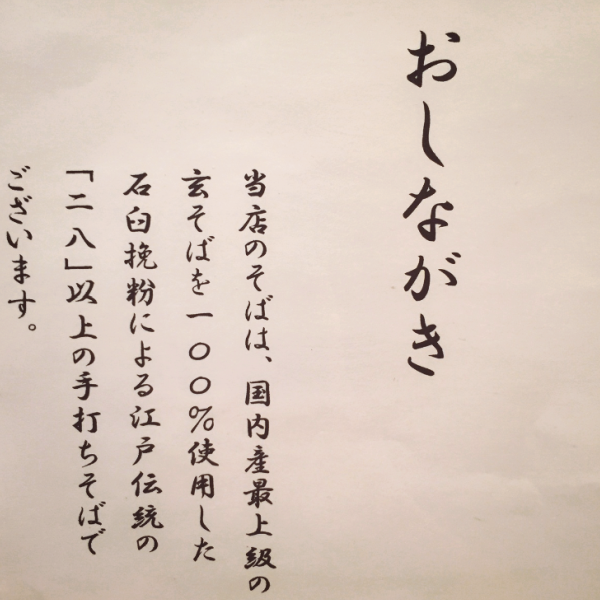 おしながき
当店のそばは、国内産最上級の
玄そばを一〇〇%使用した
石臼挽粉による江戸伝統の
「二八」以上の手打ちそばで
ございます。